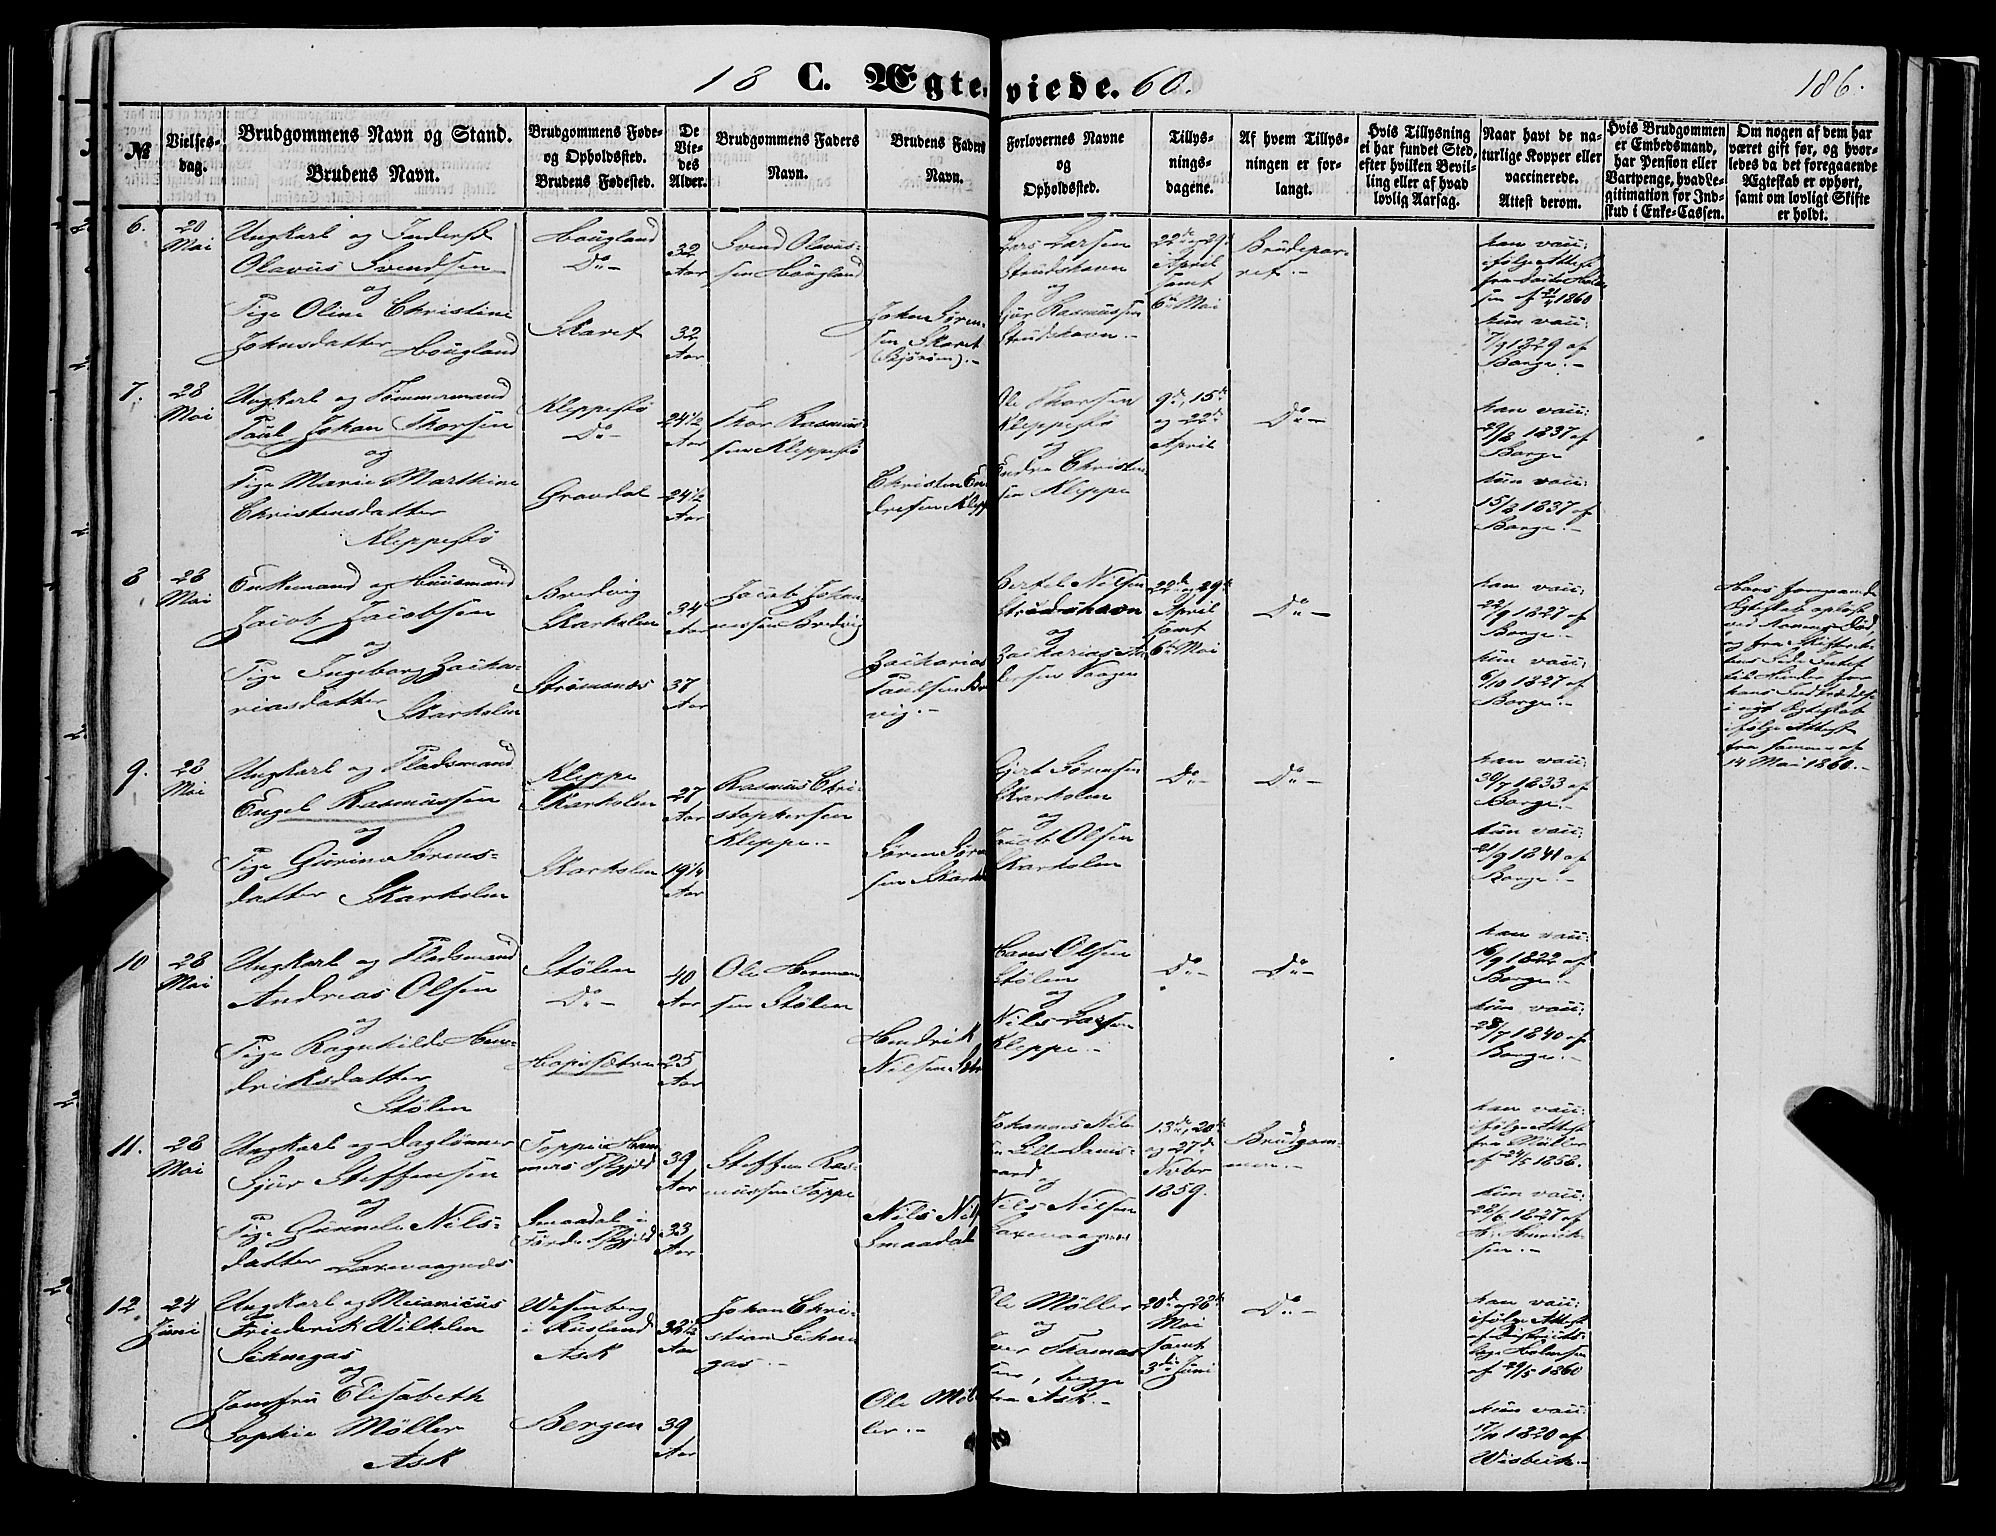 18 C. Ægteviede. 60.
186.
№
Vielses-
dag.
Brudgommens Navn og Stand.
Brudens Navn.
Brudgommens Føde-
og Opholdssted.
Brudens Fødested.
De
Vie-
des
Alder.
Brudgommens Faders
Navn.
Brudens Faders
Navn.
Forlovernes Navne
og
Opholdssted.
Tillys-
nings-
dagene.
Af hvem Tillys-
ningen er for-
langt.
Hvis Tillysning
ei har fundet Sted,
efter hvilken Bevil-
ling eller af hvad
lovlig Aarsag.
Naar havt de na-
turlige Kopper eller
vaccinerede.
Attest derom.
Hvis Brudgommen
er Embedsmand,
har Pension eller
Vartpenge, hvad Le-
gitimation for Ind-
skud i Enke-Cassen.
Om nogen af dem har
været gift før, og hvor-
ledes da det foregaaende
Ægteskab er ophørt,
samt om lovligt Skifte
er holdt.
6.
20
Mai
Ungkarl og Inderst
Olavus Svendsen
og
Pige Oline Christine
Johnsdatter Hougland
Hougland
Do -
Skaret
32
Aar
32
Aar
Svend Olavus-
sen Hougland
John Sören-
sen Skaret
Lars Larsen
Strudshavn
og
Sjur Rasmussen
Strudshavn.-
22de og 29de
April
samt
6te Mai
Brudepar-
ret.-
han vacc:
ifölge Attest
1860
hun vacc:
7/9 1829 af
Borge.-
7.
28
Mai
Ungkarl og Tømmermand
Paul Johan Thorsen
og
Pige Marie Marthine
Christensdatter
Kleppestö
Kleppestö
Do -
Gravdal
24 1/2
Aar
24 1/2
Aar
Thor Rasmus-
sen Kleppestö
Christen En-
dresen Klepp
Ole Thorsen
Kleppestö
og
Endre Christen-
sen Kleppe
9de, 15de
og 22de
April
Do -
han vacc:
29/8 1837 af
Borge
hun vacc:
15/8 1837 af
Borge.-
8
28
Mai
Enkemand og Huusmand
Jacob Jacobsen
og
Pige Ingeborg Zacha-
riasdatter
Skarholen
Bredvig
Skarholen
Strömsnæs
34
Aar
37
Aar
Jacob Johan-
nessen Bredvig
Zacharias
Paulsen Bre
vig.-
Bertel Nilsen
Strudshavn
og
Zacharias An-
dersen Vaagen
22de og 29de
April
samt
6te Mai
Do -
han vacc:
22/9 1827 af
Borge.-
hun vacc:
6/10 1827 af
Borge.-
Hans forrgaaende
Egteskab oplöst
ved Konens Död,
og fra Skifteret-
tens Side Intet
til Hinder for
hans Indtrædelse
i nyt Egteskab
ifölge Attest
fra samme af
14 Mai 1860.-
9.
28
Mai
Ungkarl og Pladsmand
Engel Rasmussen
og
Pige Gurine Sörens-
datter Skarholen
Kleppe
Skarholen
Skarholen
27
Aar
19 1/4
Aar
Rasmus Chri-
stophersen
Kleppe.-
Sören Sören
sen Skarhol
Gjert Sörensen
Skarholen
og
Jacob Olsen
Skarholen
Do -
Do -
han vacc:
30/7 1833 af
Borge.-
hun vacc:
21/9 1841 af
Borge.-
10
28
Mai
Ungkarl og Pladsmand
Andreas Olsen
og
Pige Ragnhilde Hen-
driksdatter
Stölen
Stölen
Do -
Hopssætre
40
Aar
25
Aar
Ole Herman-
sen Stölen
Hendrik
Nilsen
Hans Olsen
Stölen
og
Nils Larsen
Kleppe.-
Do -
Do -
han vacc:
16/9 1822 af
Borge.-
hun vacc:
28/7 1840 af
Borge.-
11.
28
Mai
Ungkarl og Daglönner
Sjur Steffensen
og
Pige Gunnele Nils-
datter Laxevaagnæs
Toppe i Ham-
mers Pgjeld
Smaadal i
Förde Pgjeld
39
Aar
33
Aar
Steffen Ras-
mussen Toppe
Nils Nils
Smaadal
Johannes Nils
sen Lille Dams-
gaard
og
Nils Nilsen
Laxevaagnæs
13de, 20de
og 27de
Novbr
1859.
Brudgom-
men.-
han vacc:
ifölge Attest
fra Müller
af 24/5 1858.
hun vacc:
28/6 1827 af
H. Henrik-
sen.-
12.
24
Juni
Ungkarl og Mecanicus
Friederik Wilhelm
og
Jomfru Elisabeth
Sophie Möller
Ask
Wesenberg
i Rusland
Ask
Bergen
32 1/2
Aar
39
Aar
Johan Chri-
stian
gas.-
Ole Möl-
ler.-
Ole Möller
og
Iver Thomas-
sen, begge
fra Ask.-
20de og 28de
Mai
samt
3die Juni
Do -
han vacc:
ifölge Attest
af Districts-
læge Holmsen
af 29/5 1860
hun vacc:
17/11 1820 af
Wisbech.-